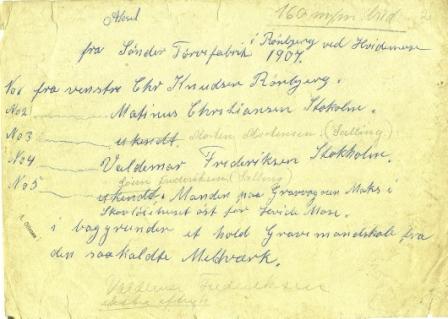 Aksel
160 m/m bred
fra Sønder Tørvefabrik i Rönbjerg ved Hvidemose
1907.
No 1 fra venstre Chr Knudsen Rönbjerg.
No 2 Matinus Christiansen Stokolm.
No 3 ukendt. Morten Mortensen. (Salling)
No 4 Valdemar Frederiksen Stokholm.
Jens Frederiksen (Salling)
No 5 ukendt. Manden paa Gravevognen Maks i
øst for Hvide Mose.
i baggrunden et hold Gravemandskab fra
den saakaldte Meltværk.
Valdemar Frederiksen